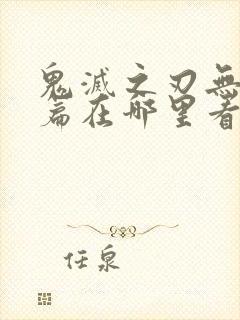 鬼滅之刃無
篇在哪里看
任泉